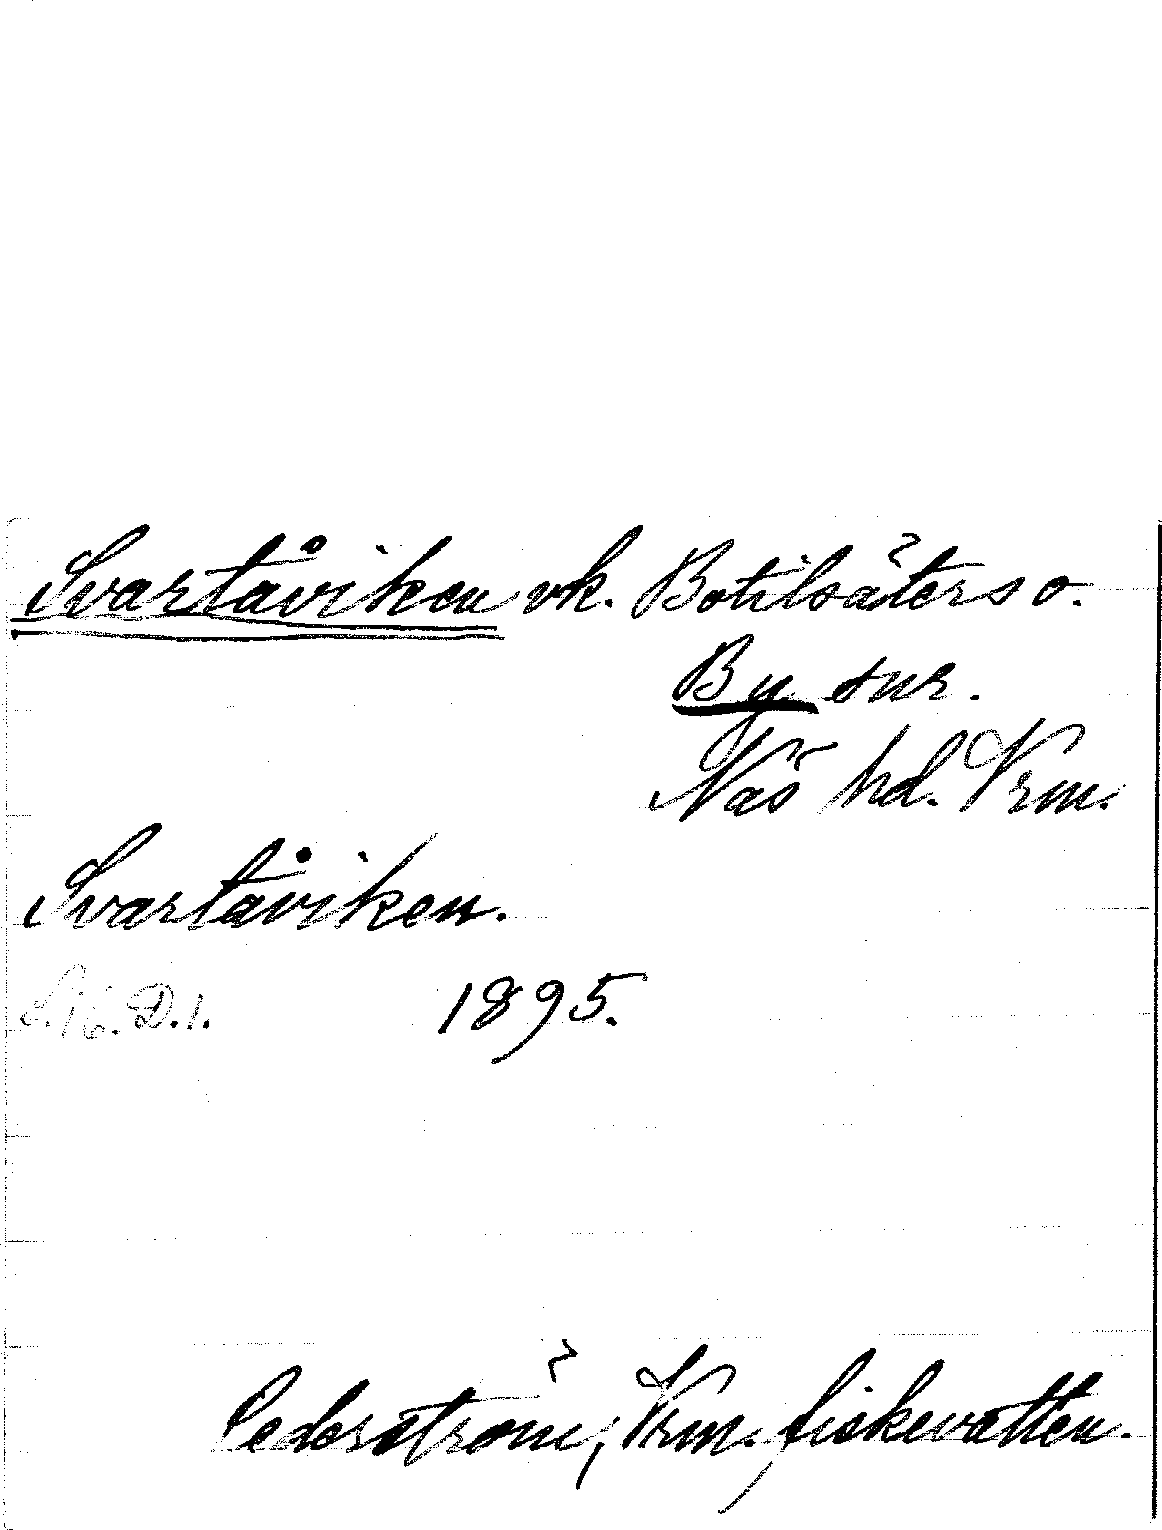 Svartåviken vk. Botilsäters o.
By snr.
Näs hd. Vrm.
Svartåviken.
S. 16. D. 1. 1895.
Cederström, Vrm. fiskevatten.